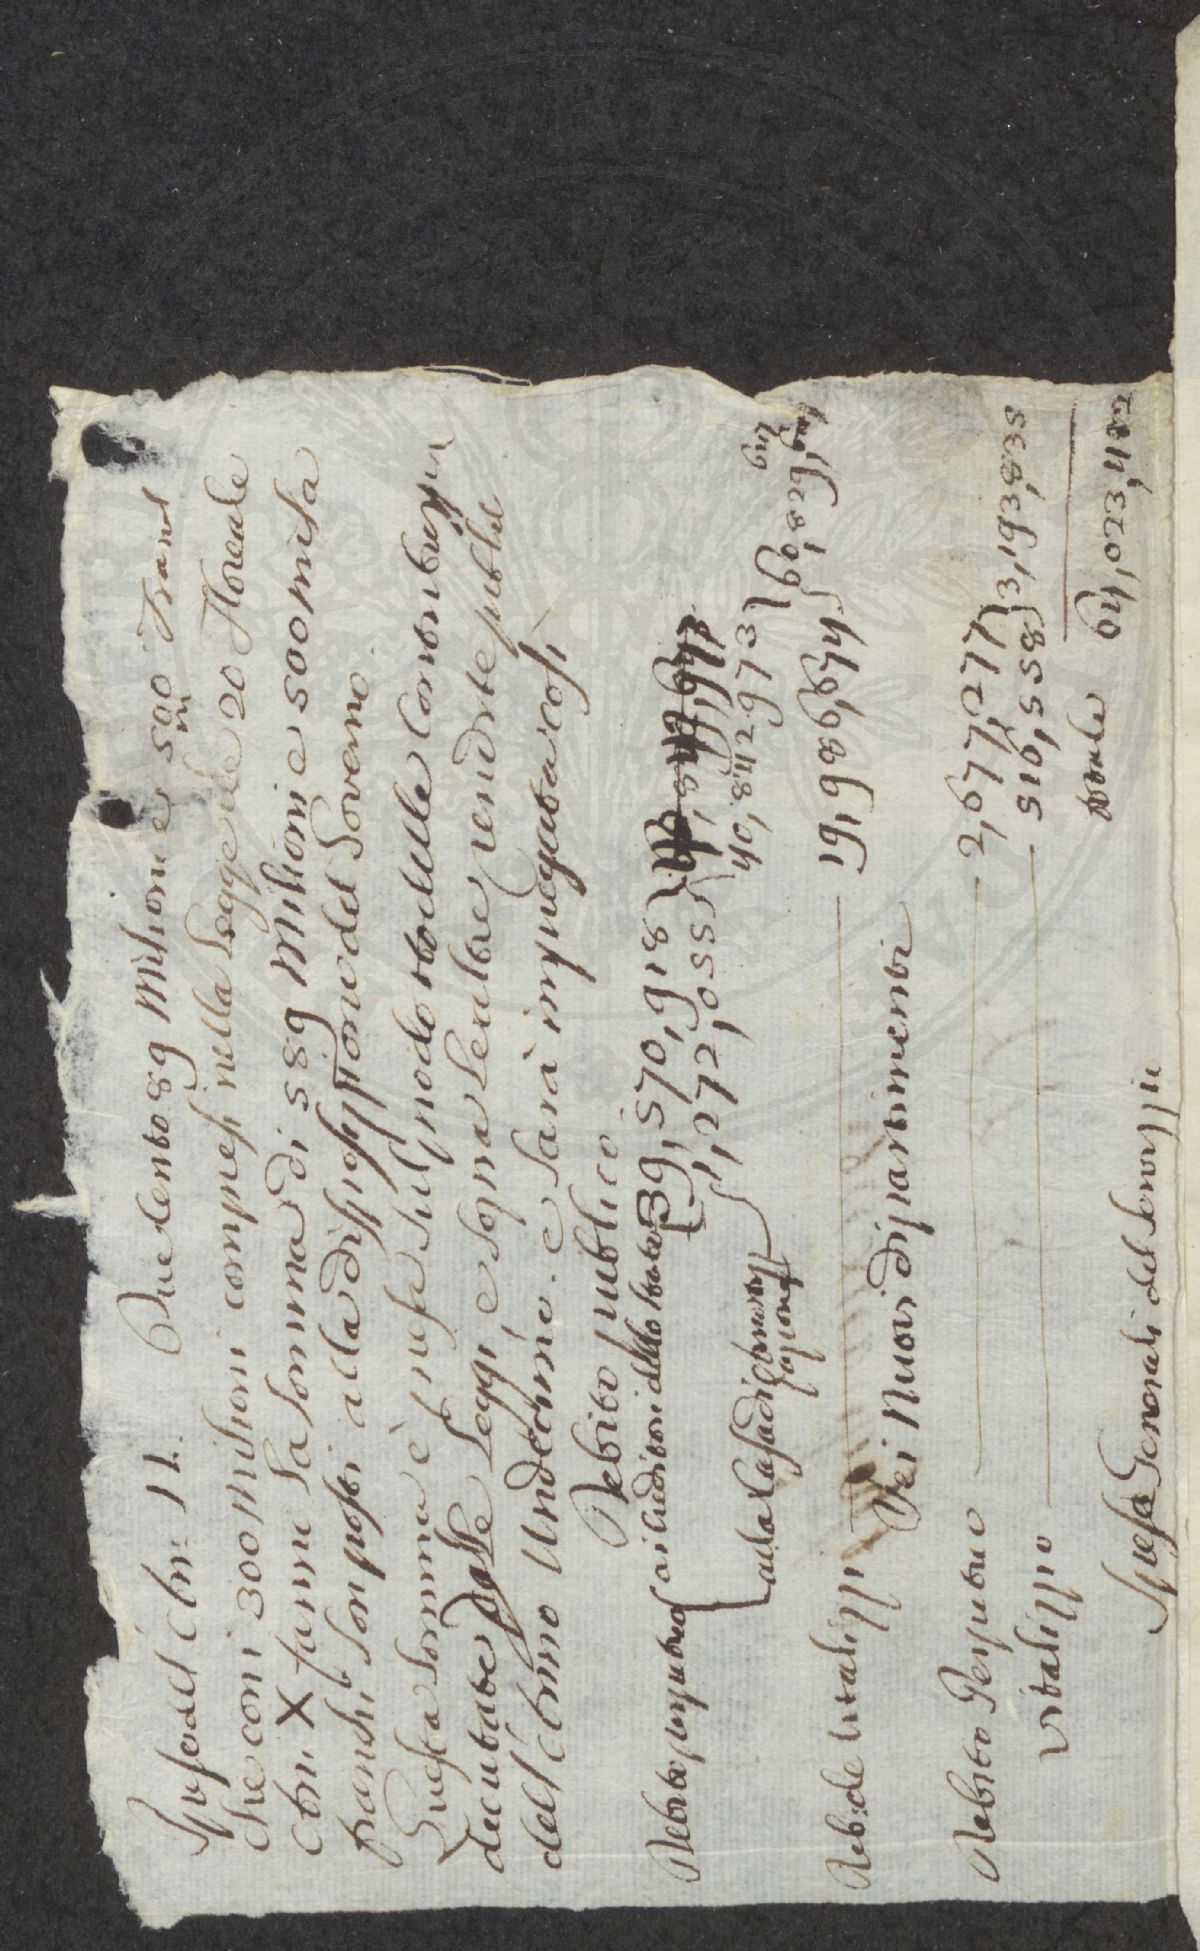 Spesa dell'Anno 11. Due cento 89 Milioni e 500 m Franchi
che con i 300 milioni compresi nella Legge de 20 Floreale
Anno X fanno la somma di 589 Milioni e 500 mila
franchi son posti alla disposizione del Governo.
Questa somma è presa sul prodotto delle Contribuzioni
decretate dalle Leggi, e sopra le altre rendite pubbliche
dell'Anno Undecimo. e sarà impiegata così
Debito publico.
Debito perpetuo { ai creditori dello Stato 39,570,918
alla Cassa di 1,272,055 } 40,842,973 } 60,829
Deb: de Vitalizzi — 19,986,674
Dei Nuovi dipartimenti
Debito Perpetuo — 2,677,277 } 3,193,835
Vitalizzo — 516,558
totale 64,023,4
Spese Generali del Servizzio